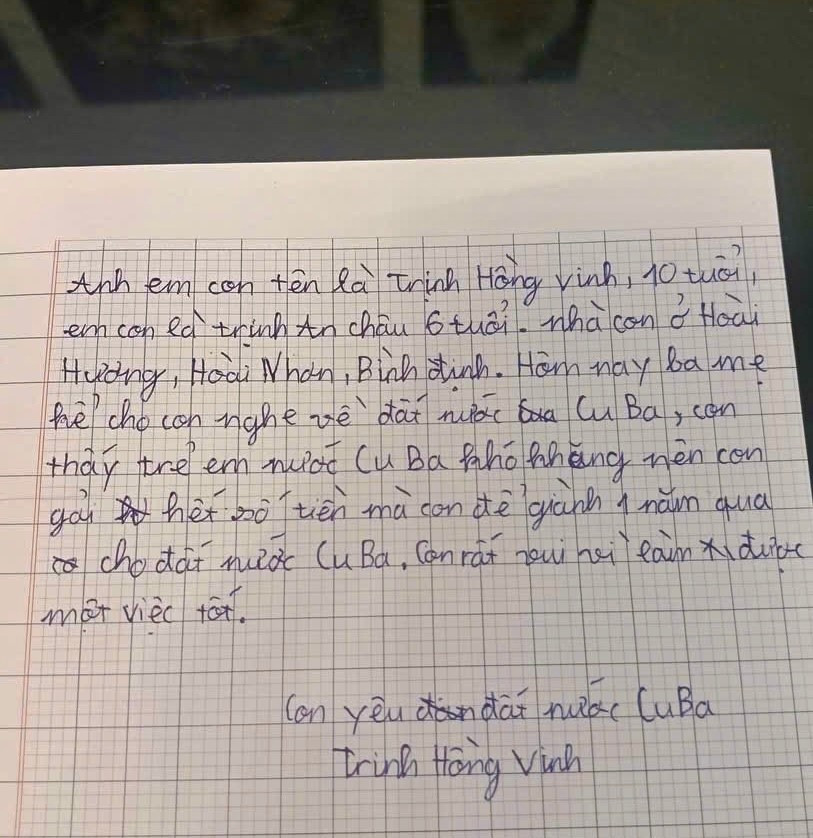 Anh em con tên là Trịnh Hồng Vinh, 10 tuổi,
em con là trịnh An châu 6 tuổi. nhà con ở Hoài
Hương, Hoài Nhơn, Bình định. Hôm nay ba mẹ
kể cho con nghe về đất nước Cu Ba, con
thấy trẻ em nước Cu Ba khó khăng nên con
gởi hết số tiền mà con để giành 1 năm qua
cho đất nước Cu Ba. Con rất vui vì làm được
một việc tốt.
Con yêu đất nước CuBa
Trịnh Hồng Vinh